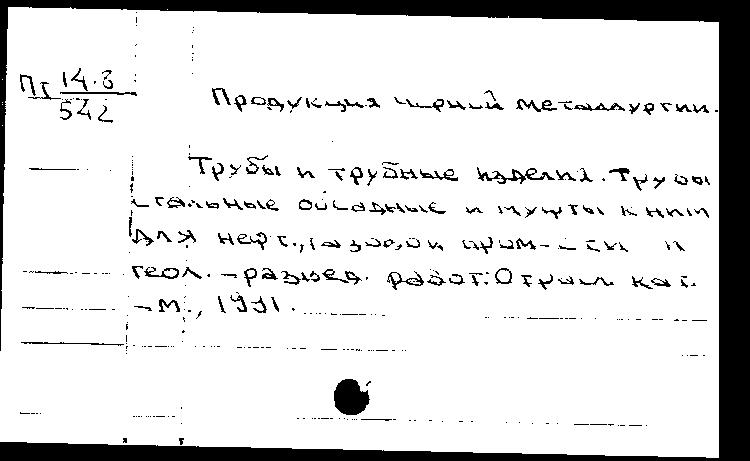 Пг 14.3
542
Продукция черной металлургии.
Трубы и трубные изделия. Трубы
стальные обсадные и муфты к ним
для нефт., газов. и пром-сти и
геол. - развед. работ: Отрасл. кат.
- М., 1991.